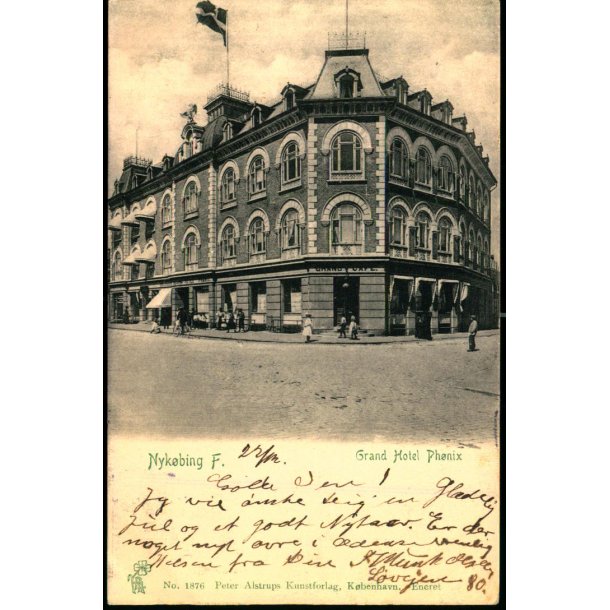 GRAND CAFE.
Nykøbing F. 22/12.
Grand Hotel Phønix
Ven!
Jeg vil ønske dig en Glædelig
Jul og et godt Nytaar. Er der
noget nyt ovre i Odense venlig
Hilsen fra Din
80.
No. 1876 Peter Alstrups Kunstforlag, København, Eneret